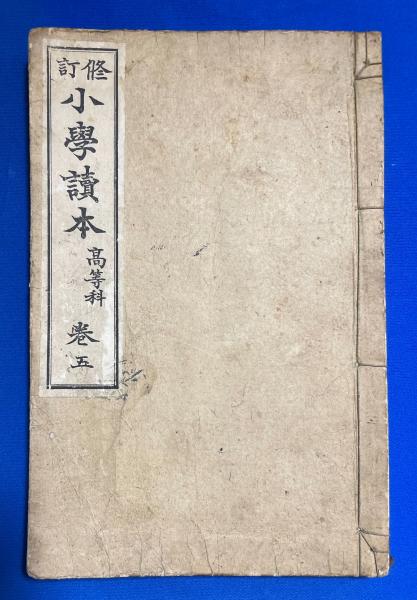 修訂
小學讀本
高等科
卷五